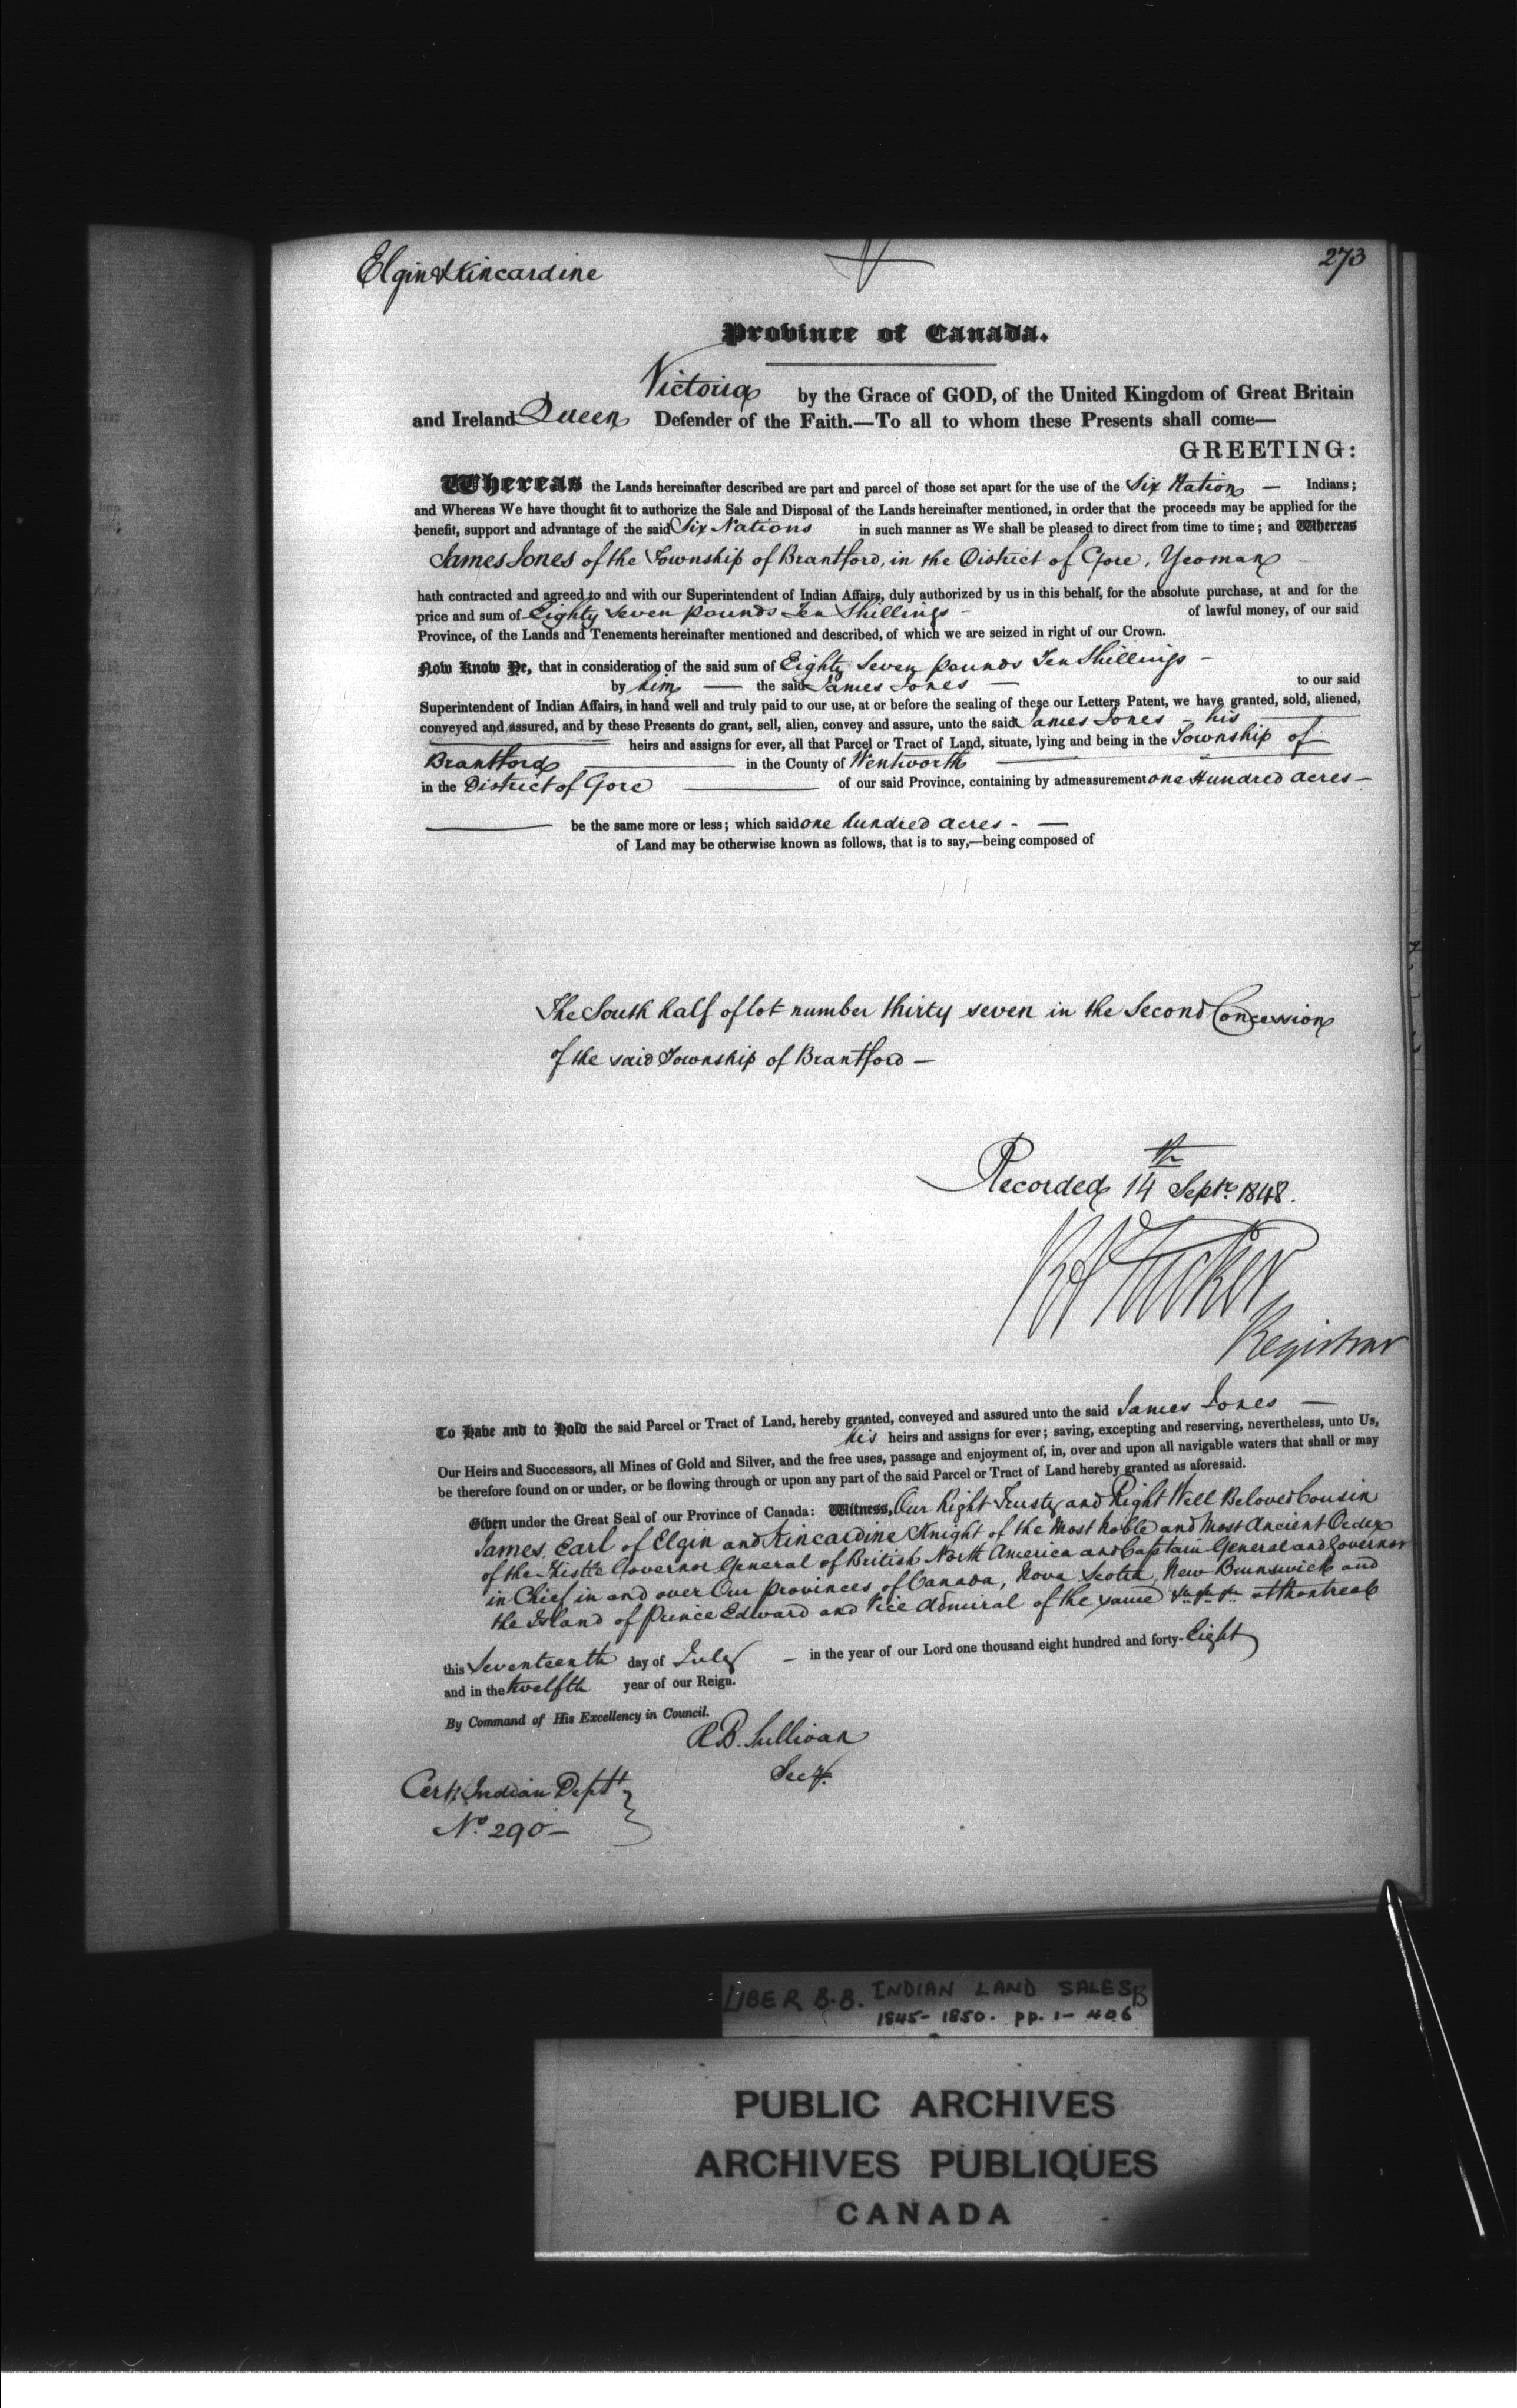 Elgin & Kincardine
273
Province of Canada.
Victoria by the Grace of GOD, of the United Kingdom of Great Britain
and Ireland Queen Defender of the Faith.—To all to whom these Presents shall come—
GREETING:
Whereas the Lands hereinafter described are part and parcel of those set apart for the use of the Six Nation — Indians;
and Whereas We have thought fit to authorize the Sale and Disposal of the Lands hereinafter mentioned, in order that the proceeds may be applied for the
benefit, support and advantage of the said Six Nations in such manner as We shall be pleased to direct from time to time; and Whereas
James Jones of the Township of Brantford, in the District of Gore, Yeoman
hath contracted and agreed to and with our Superintendent of Indian Affairs, duly authorized by us in this behalf, for the absolute purchase, at and for the
price and sum of Eighty Seven pounds Ten Shillings — of lawful money, of our said
Province, of the Lands and Tenements hereinafter mentioned and described, of which we are seized in right of our Crown.
Now Know Ye, that in consideration of the said sum of Eighty Seven pounds Ten Shillings —
by him — the said James Jones — to our said
Superintendent of Indian Affairs, in hand well and truly paid to our use, at or before the sealing of these our Letters Patent, we have granted, sold, aliened,
conveyed and assured, and by these Presents do grant, sell, alien, convey and assure, unto the said James Jones — his
heirs and assigns for ever, all that Parcel or Tract of Land, situate, lying and being in the Township of
Brantford — in the County of Wentworth —
in the District of Gore — of our said Province, containing by admeasurement one Hundred acres —
— be the same more or less; which said one hundred acres - —
of Land may be otherwise known as follows, that is to say,—being composed of
The South half of lot number thirty seven in the Second Concession
of the said Township of Brantford —
Recorded 14th Septr. 1848.
Tucker
Registrar
To Have and to Hold the said Parcel or Tract of Land, hereby granted, conveyed and assured unto the said James Jones —
his heirs and assigns for ever; saving, excepting and reserving, nevertheless, unto Us,
Our Heirs and Successors, all Mines of Gold and Silver, and the free uses, passage and enjoyment of, in, over and upon all navigable waters that shall or may
be therefore found on or under, or be flowing through or upon any part of the said Parcel or Tract of Land hereby granted as aforesaid.
Given under the Great Seal of our Province of Canada: Witness, Our Right Trusty and Right Well Beloved Cousin
James, Earl of Elgin and Kincardine Knight of the Most Noble and Most Ancient Order
of the Thistle Governor General of British North America and Captain General and Governor
in Chief in and over Our provinces of Canada, Nova Scotia, New Brunswick and
the Island of Prince Edward and Vice Admiral of the same at Montreal
this Seventeenth day of July — in the year of our Lord one thousand eight hundred and forty-Eight
and in the twelfth year of our Reign.
By Command of His Excellency in Council.
R B. Sullivan
Secy.
Certe. Indian Deptt
No. 290 —
LIBER B.B. INDIAN LAND SALES B
1845- 1850. pp. 1- 406
PUBLIC ARCHIVES
ARCHIVES PUBLIQUES
CANADA